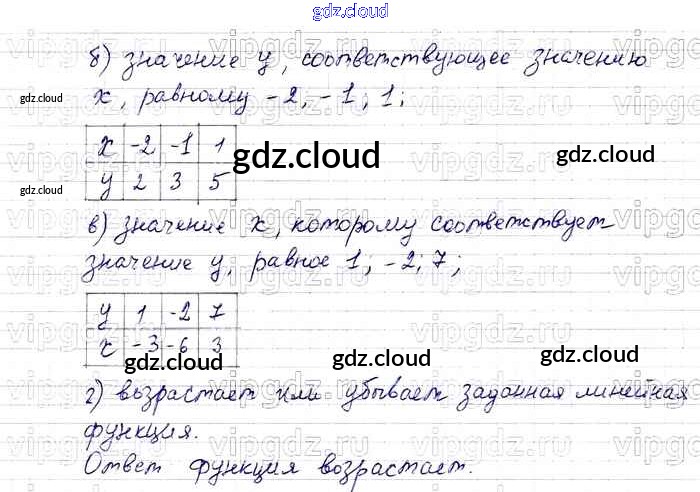 gdz.cloud
б) значение y, соответствующее значению
x, равному -2, -1; 1;
gdz.cloud
gdz.cloud
x -2 -1 1
y 2 3 5
gdz.cloud
gdz.cloud
gdz.cloud
в) значение x, которому соответствует
значение y, равное 1; -2; 7;
y 1 -2 7
x -3 -6 3
gdz.cloud
gdz.cloud
gdz.cloud
г) возрастает или убывает заданная линейная
функция.
Ответ функция возрастает.